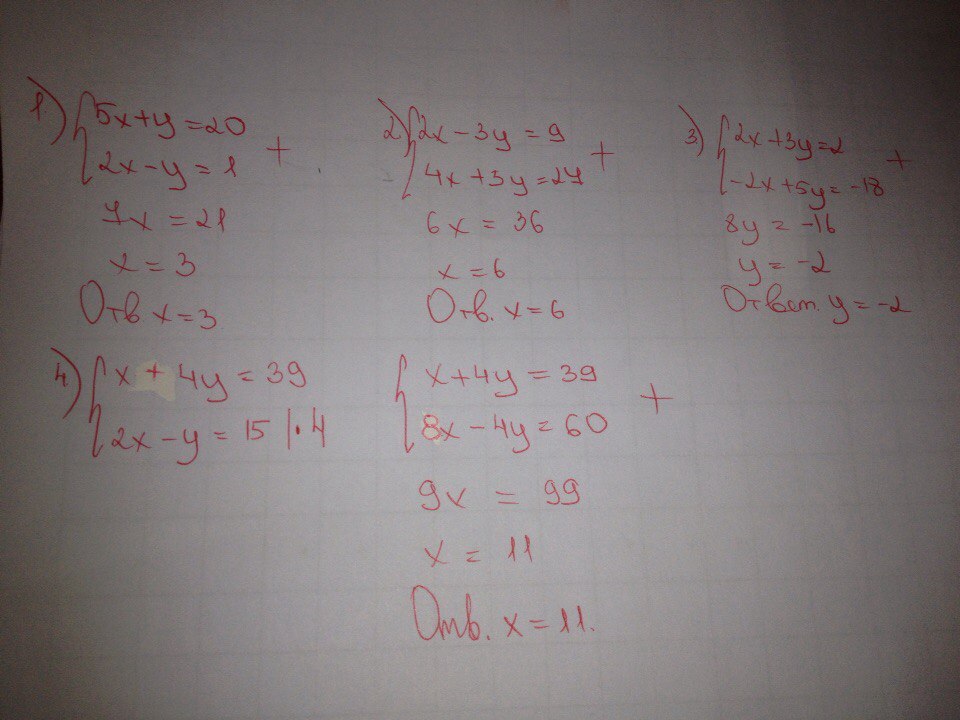 1.) 5x+y=20
2x-y=1 +
7x=21
x=3
Отв x=3
2) 2x-3y=9
4x+3y=27 +
6x=36
x=6
Отв. x=6
3) 2x+3y=2
-2x+5y=-18 +
8y=-16
y=-2
Ответ. y=-2
4) x+4y=39
2x-y=15 |·4
x+4y=39
8x-4y=60 +
9x=99
x=11
Отв. x=11.